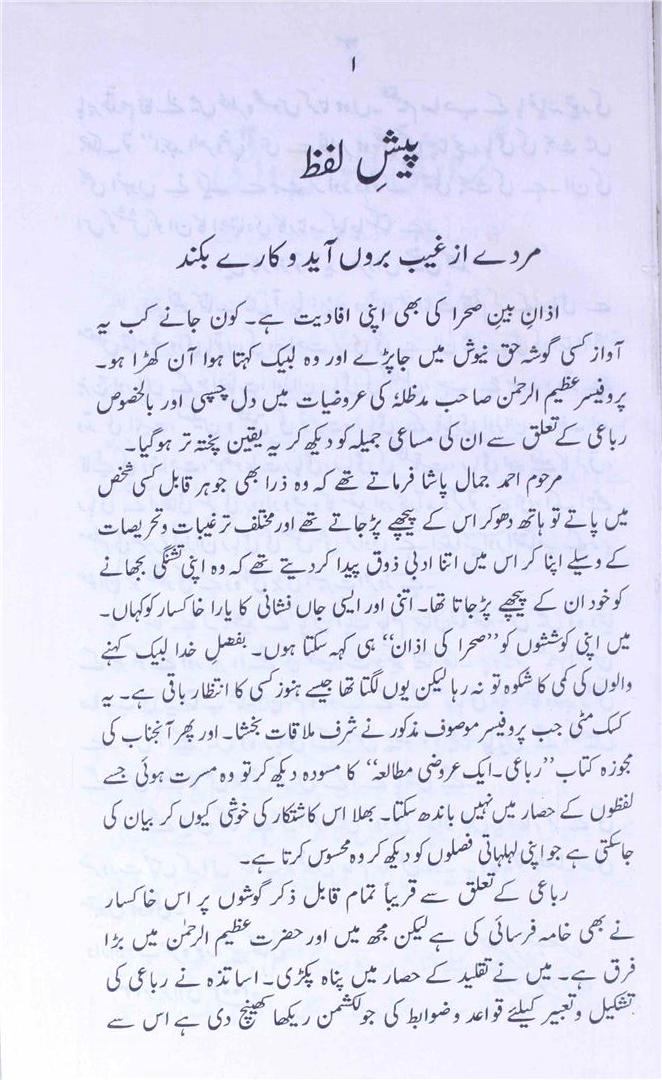 ۱
پیشِ لفظ
مردے از غیب بروں آید و کارے بکند
اذانِ بینِ صحرا کی بھی اپنی افادیت ہے۔ کون جانے کب یہ
آواز کسی گوشۂ حق نیوش میں جا پڑے اور وہ لبیک کہتا ہوا آن کھڑا ہو۔
پروفیسر عظیم الرحمٰن صاحب مدظلہٗ کی عروضیات میں دل چسپی اور بالخصوص
رباعی کے تعلق سے ان کی مساعیِ جمیلہ کو دیکھ کر یہ یقین پختہ تر ہوگیا۔
مرحوم احمد جمال پاشا فرماتے تھے کہ وہ ذرا بھی جوہر قابل کسی شخص
میں پاتے تو ہاتھ دھوکر اس کے پیچھے پڑجاتے تھے اور مختلف ترغیبات و تحریصات
کے وسیلے اپنا کر اس میں اتنا ادبی ذوق پیدا کردیتے تھے کہ وہ اپنی تشنگی بجھانے
کو خود ان کے پیچھے پڑ جاتا تھا۔ اتنی اور ایسی جاں فشانی کا یارا خاکسار کو کہاں۔
میں اپنی کوششوں کو ”صحرا کی اذان“ ہی کہہ سکتا ہوں۔ بفضل خدا لبیک کہنے
والوں کی کمی کا شکوہ تو نہ رہا لیکن یوں لگتا تھا جیسے ہنوز کسی کا انتظار باقی ہے۔ یہ
کسک مٹی جب پروفیسر موصوف مذکور نے شرف ملاقات بخشا۔ اور پھر آنجناب کی
مجوزہ کتاب ”رباعی۔ ایک عروضی مطالعہ“ کا مسودہ دیکھ کر تو وہ مسرت ہوئی جسے
لفظوں کے حصار میں نہیں باندھ سکتا۔ بھلا اس کاشتکار کی خوشی کیوں کر بیان کی
جاسکتی ہے جو اپنی لہلہاتی فصلوں کو دیکھ کر وہ محسوس کرتا ہے۔
رباعی کے تعلق سے قریباً تمام قابل ذکر گوشوں پر اس خاکسار
نے بھی خامہ فرسائی کی ہے لیکن مجھ میں اور حضرت عظیم الرحمٰن میں بڑا
فرق ہے۔ میں نے تقلید کے حصار میں پناہ پکڑی۔ اساتذہ نے رباعی کی
تشکیل و تعبیر کیلئے قواعد و ضوابط کی جو لکشمن ریکھا کھینچ دی ہے اس سے